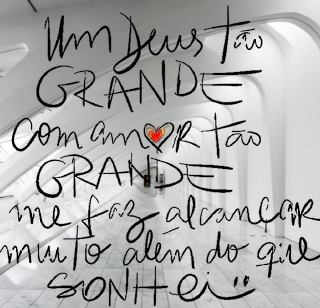 Um Deus tão
GRANDE
com amor tão
GRANDE
me faz alcançar
muito além do que
SONHei